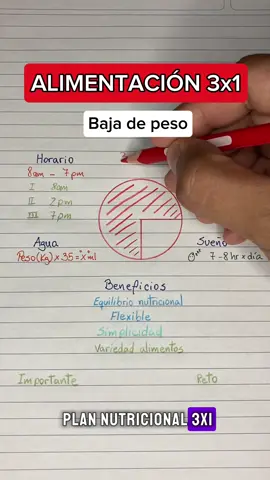 ALIMENTACIÓN 3x1
Baja de peso
Horario
8am - 7pm
I 8am
II 2pm
III 7pm
Agua
Peso(Kg) x 35 = "x" ml
Sueño
7-8 hr x día
Beneficios
Equilibrio nutricional
Flexible
Simplicidad
Variedad alimentos
Importante
Reto
PLAN NUTRICIONAL 3X1